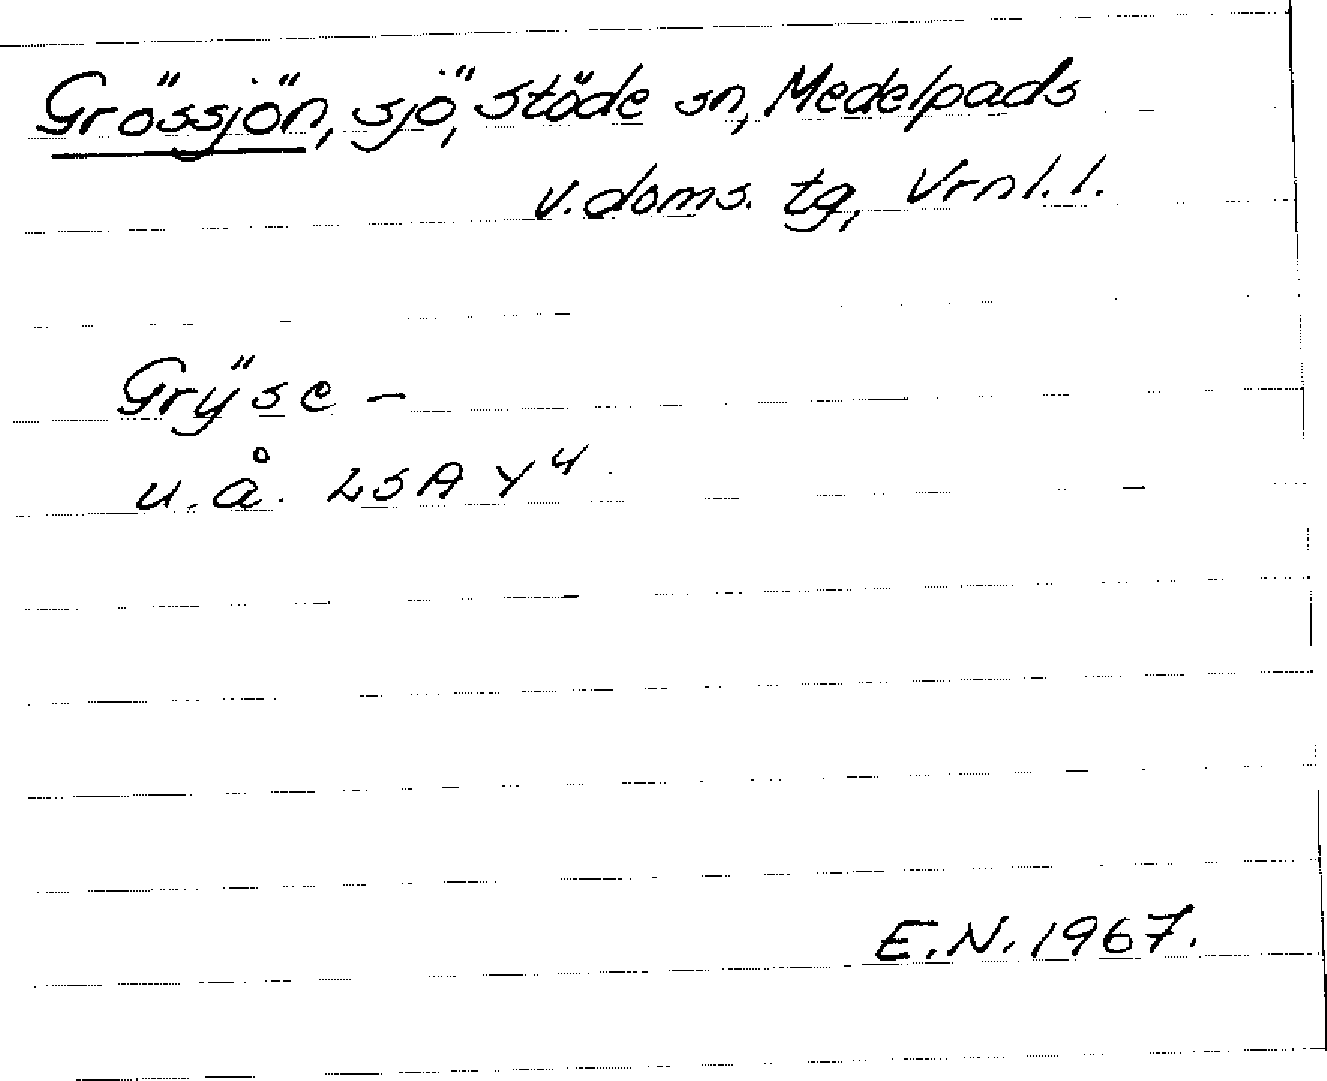 Grössjön, sjö, Stöde sn, Medelpads
v. doms. tg, Vrnl. l.
Grÿse –
u. å. LSA Y 4
E.N. 1967.